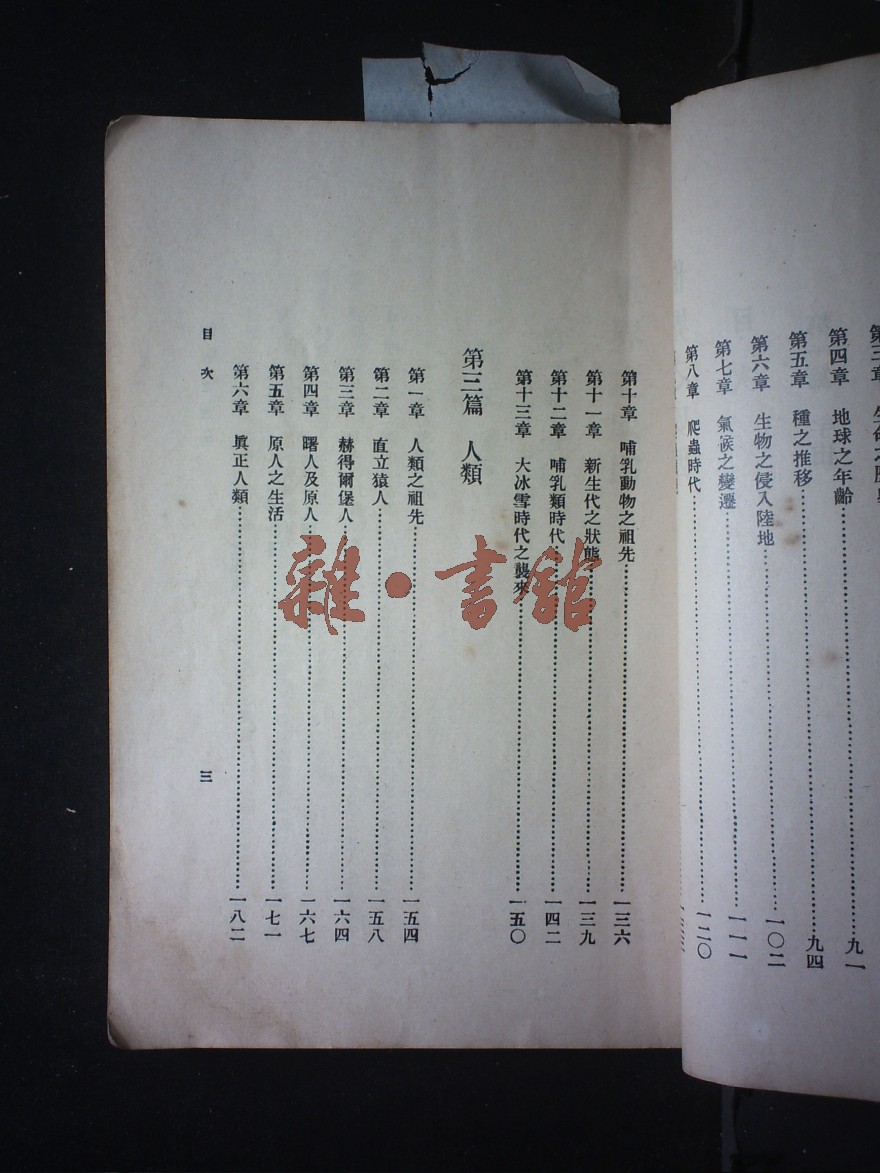 第四章　地球之年齡……九一
第五章　種之推移……九四
第六章　生物之侵入陸地……一〇二
第七章　氣候之變遷……一一一
第八章　爬蟲時代……一二〇
第十章　哺乳動物之祖先……一三六
第十一章　新生代之狀態……一三九
第十二章　哺乳類時代……一四二
第十三章　大冰雪時代之襲來……一五〇
第三篇　人類
第一章　人類之祖先……一五四
第二章　直立猿人……一五八
第三章　赫得爾堡人……一六四
第四章　曙人及原人……一六七
第五章　原人之生活……一七一
第六章　眞正人類……一八二
目次
三
雜·書館